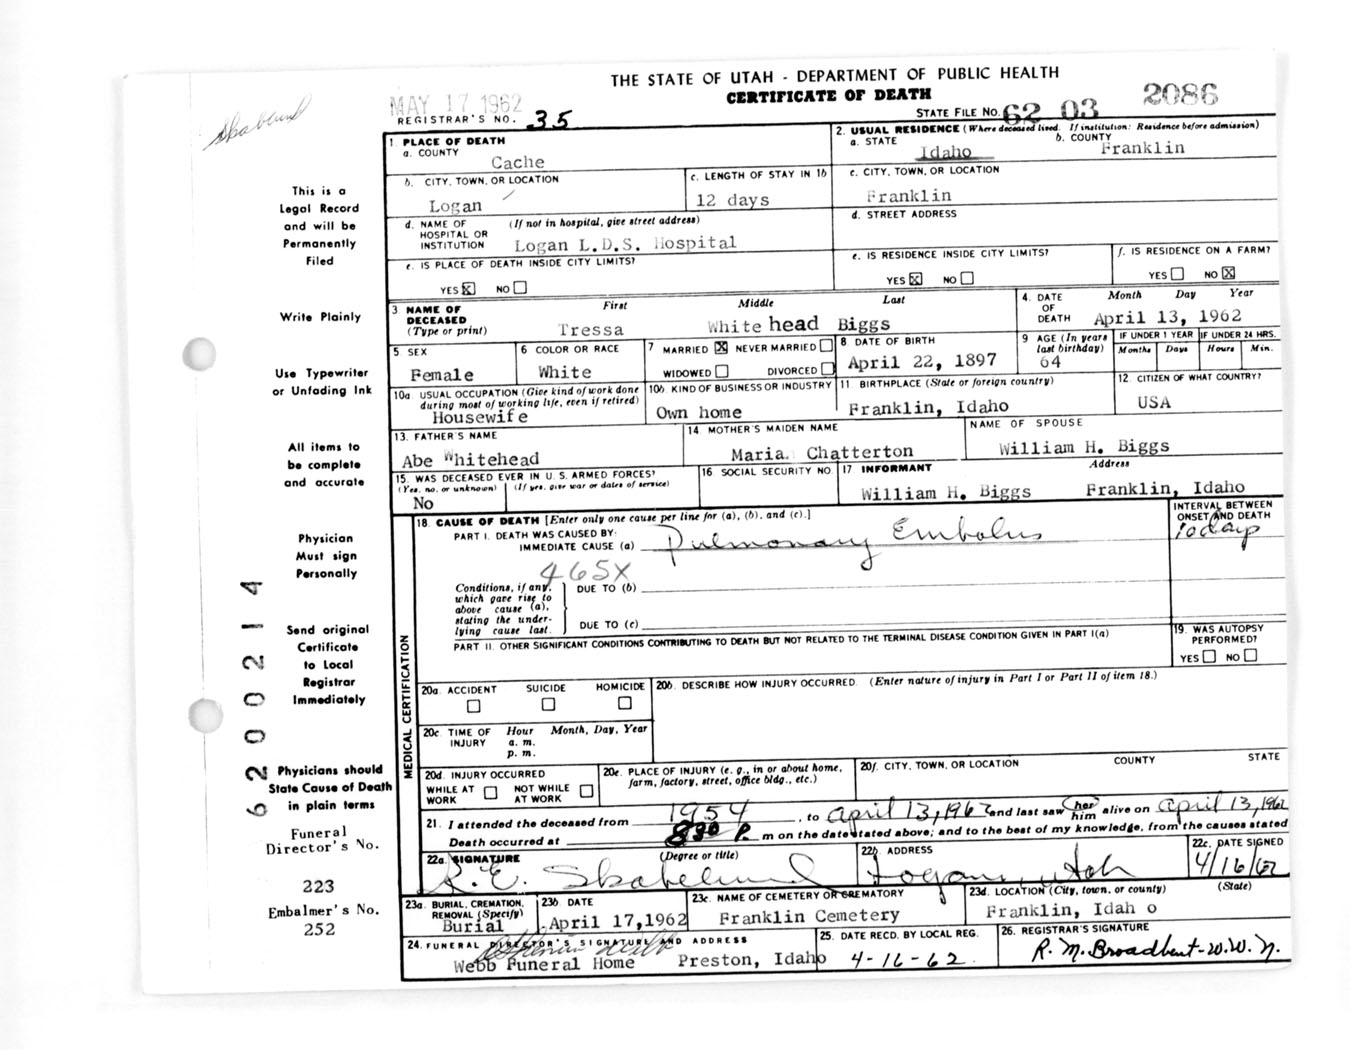 THE STATE OF UTAH - DEPARTMENT OF PUBLIC HEALTH
CERTIFICATE OF DEATH
MAY 17 1962
REGISTRAR'S NO. 35
STATE FILE NO. 62 03 2086
Skabelund
This is a
Legal Record
and will be
Permanently
Filed
Write Plainly
Use Typewriter
or Unfading Ink
All items to
be complete
and accurate
Physician
Must sign
Personally
Send original
Certificate
to Local
Registrar
Immediately
Physicians should
State Cause of Death
in plain terms
Funeral
Director's No.
223
Embalmer's No.
252
62000214
1. PLACE OF DEATH
a. COUNTY
Cache
2. USUAL RESIDENCE (Where deceased lived. If institution: Residence before admission)
a. STATE Idaho b. COUNTY Franklin
b. CITY, TOWN, OR LOCATION
Logan
c. LENGTH OF STAY IN 1b
12 days
c. CITY, TOWN, OR LOCATION
Franklin
d. NAME OF HOSPITAL OR INSTITUTION (If not in hospital, give street address)
Logan L.D.S. Hospital
d. STREET ADDRESS
e. IS PLACE OF DEATH INSIDE CITY LIMITS?
YES X NO
e. IS RESIDENCE INSIDE CITY LIMITS?
YES X NO
f. IS RESIDENCE ON A FARM?
YES NO X
3. NAME OF DECEASED (Type or print)
First Middle Last
Tressa Whitehead Biggs
4. DATE OF DEATH Month Day Year
April 13, 1962
5. SEX
Female
6 COLOR OR RACE
White
7 MARRIED X NEVER MARRIED
WIDOWED DIVORCED
8 DATE OF BIRTH
April 22, 1897
9 AGE (In years last birthday)
64
IF UNDER 1 YEAR IF UNDER 24 HRS.
Months Days Hours Min.
10a. USUAL OCCUPATION (Give kind of work done during most of working life, even if retired)
Housewife
10b. KIND OF BUSINESS OR INDUSTRY
Own home
11. BIRTHPLACE (State or foreign country)
Franklin, Idaho
12. CITIZEN OF WHAT COUNTRY?
USA
13. FATHER'S NAME
Abe Whitehead
14. MOTHER'S MAIDEN NAME
Maria Chatterton
NAME OF SPOUSE
William H. Biggs
15. WAS DECEASED EVER IN U. S. ARMED FORCES?
(Yes, no, or unknown) (If yes, give war or dates of service)
No
16 SOCIAL SECURITY NO.
17 INFORMANT Address
William H. Biggs Franklin, Idaho
MEDICAL CERTIFICATION
18. CAUSE OF DEATH [Enter only one cause per line for (a), (b), and (c).]
PART I. DEATH WAS CAUSED BY:
IMMEDIATE CAUSE (a) Pulmonary Embolus
INTERVAL BETWEEN ONSET AND DEATH
10 days
465X
Conditions, if any, which gave rise to above cause (a), stating the under-lying cause last.
DUE TO (b)
DUE TO (c)
PART II. OTHER SIGNIFICANT CONDITIONS CONTRIBUTING TO DEATH BUT NOT RELATED TO THE TERMINAL DISEASE CONDITION GIVEN IN PART I(a)
19. WAS AUTOPSY PERFORMED?
YES NO
20a. ACCIDENT SUICIDE HOMICIDE
20b. DESCRIBE HOW INJURY OCCURRED. (Enter nature of injury in Part I or Part II of item 18.)
20c. TIME OF INJURY Hour Month, Day, Year
a. m.
p. m.
20d. INJURY OCCURRED
WHILE AT WORK NOT WHILE AT WORK
20e. PLACE OF INJURY (e. g., in or about home, farm, factory, street, office bldg., etc.)
20f. CITY, TOWN, OR LOCATION COUNTY STATE
21. I attended the deceased from 1954, to April 13, 1962 and last saw her him alive on April 13, 1962
Death occurred at 830 P. m on the date stated above; and to the best of my knowledge, from the causes stated
22a. SIGNATURE (Degree or title)
R. E. Skabelund
22b ADDRESS
Logan, Utah
22c. DATE SIGNED
4/16/62
23a. BURIAL, CREMATION, REMOVAL (Specify)
Burial
23b. DATE
April 17, 1962
23c. NAME OF CEMETERY OR CREMATORY
Franklin Cemetery
23d. LOCATION (City, town, or county) (State)
Franklin, Idah o
24. FUNERAL DIRECTOR'S SIGNATURE AND ADDRESS
Webb Funeral Home Preston, Idaho
25. DATE RECD. BY LOCAL REG.
4-16-62
26. REGISTRAR'S SIGNATURE
R. M. Broadbent - W. W. N.